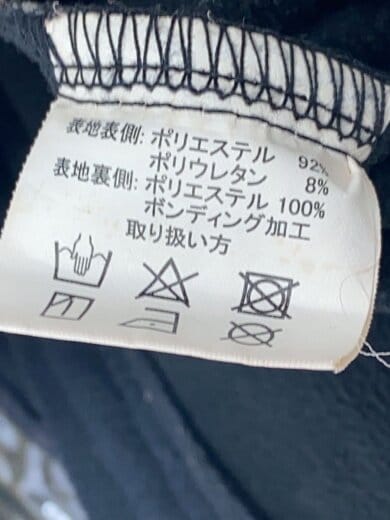 表地表側: ポリエステル 92%
ポリウレタン 8%
表地裏側: ポリエステル 100%
ボンディング加工
取り扱い方